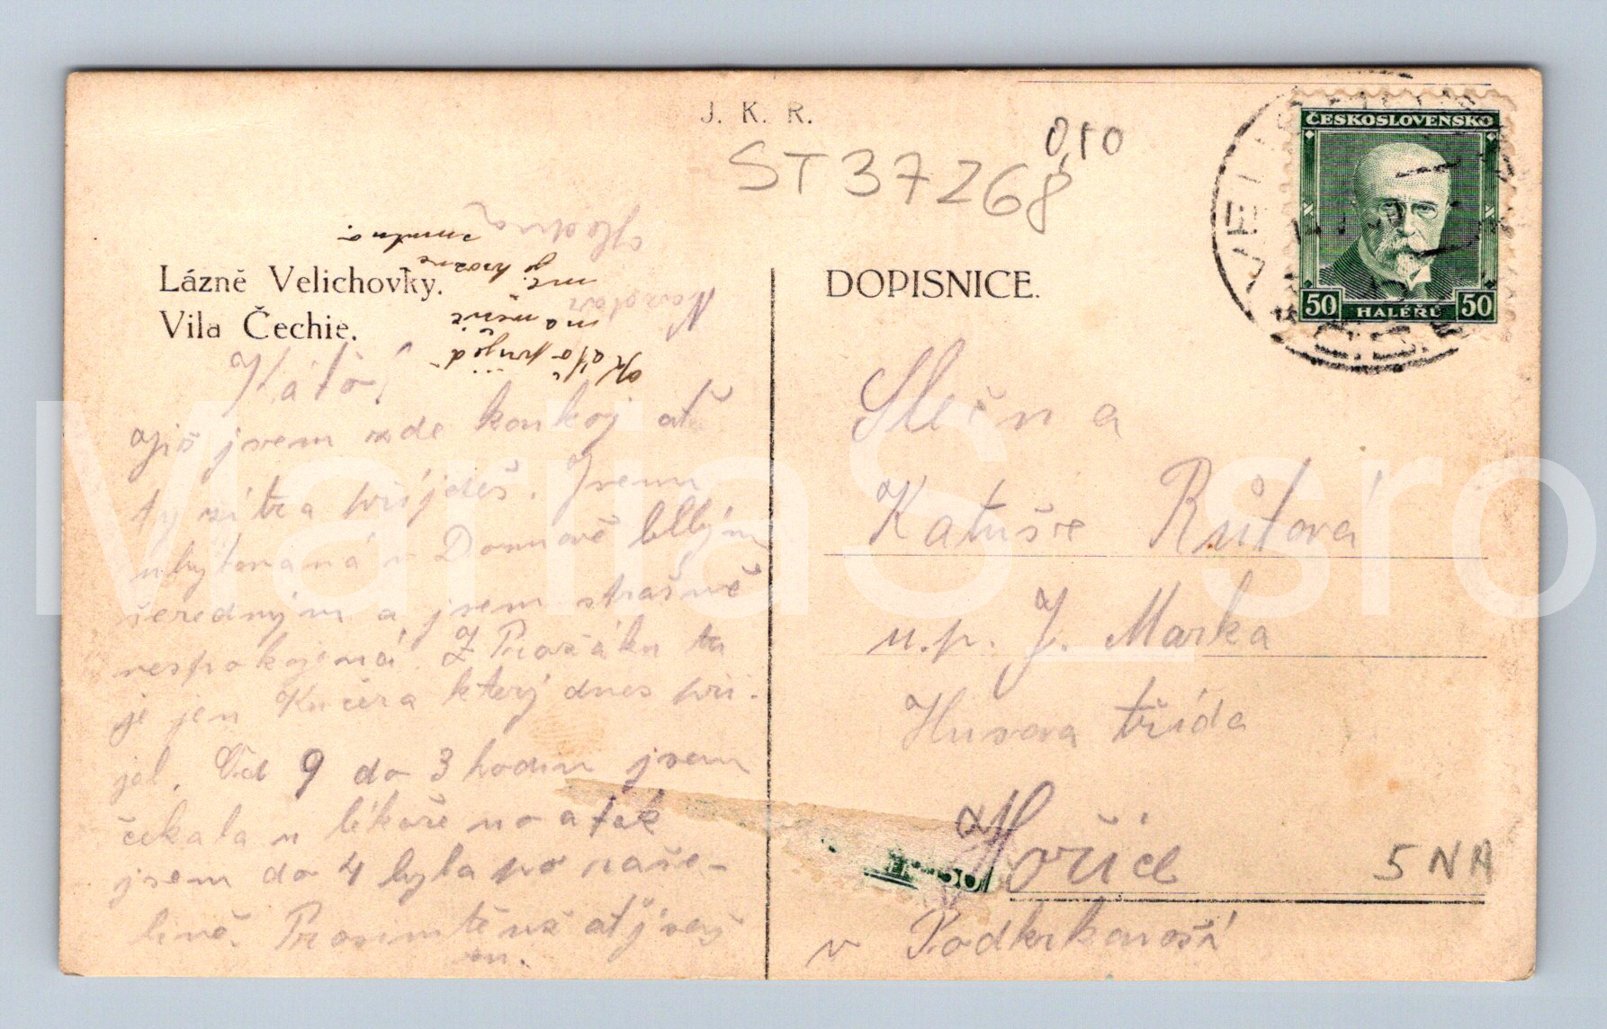 J. K. R.
ST 37268
0,10
ČESKOSLOVENSKO
50 HALÉŘŮ 50
Lázně Velichovky.
Vila Čechie.
DOPISNICE.
Káťo!
Již jsem zde koukej ať
ty zítra přijdeš. Jsem
ubytovaná v Domově bílým
šeredným a jsem strašně
nespokojená. Z Pražáku tu
je jen Kučera který dnes při-
jel. Od 9 do 3 hodin jsem
čekala u lékaře no a pak
jsem do 4 byla po
Prosím tě už ať jseš
Káťo přijeď
na mě
mě. je hrozně
smutno.
Slečna
Katušie Růtová
u.p. J. Marka
Husova třída
Hořice
v Podkrkonoší
5 NA
MartiaS_sro